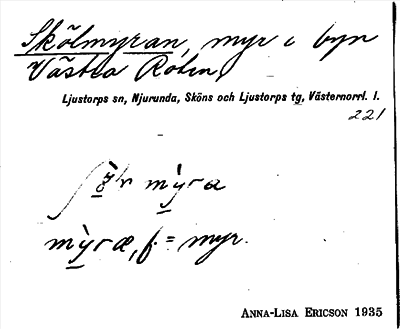 Skölmyran, myr i byn
Västra Roten
Ljustorps sn, Njurunda, Sköns och Ljustorps tg, Västernorrl. l.
221
mỳra
mỳræ, f. = myr.
ANNA-LISA ERICSON 1935